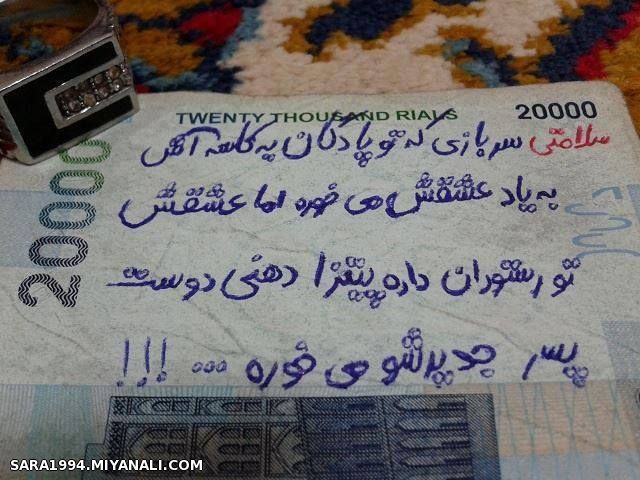 TWENTY THOUSAND RIALS 20000
20000
سلامتی سربازی که تو پادگان یه کاسه آش
به یاد عشقش می خوره اما عشقش
تو رستوران داره پیتزا دهنی دوست
پسر جدیدشو می خوره ... !!!
SARA1994.MIYANALI.COM